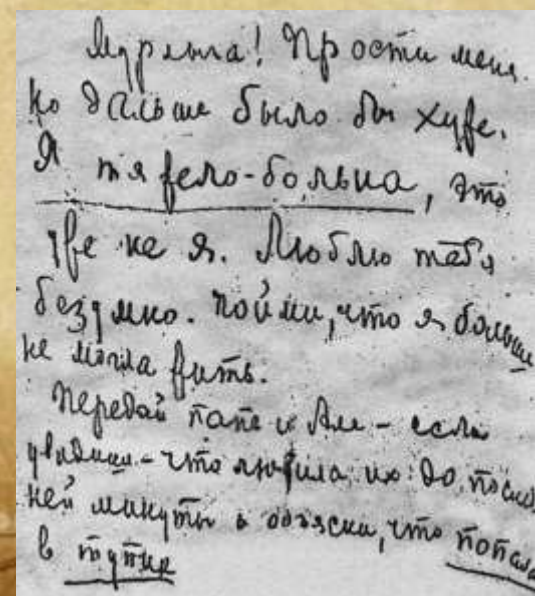 Мурлыга! Прости меня.
Но дальше было бы хуже.
Я тяжело-больна, это
уже не я. Люблю тебя
безумно. Пойми, что я больше
не могла жить.
Передай папе и Але - если
увидишь - что любила их до послед
ней минуты и объясни, что попала
в тупик